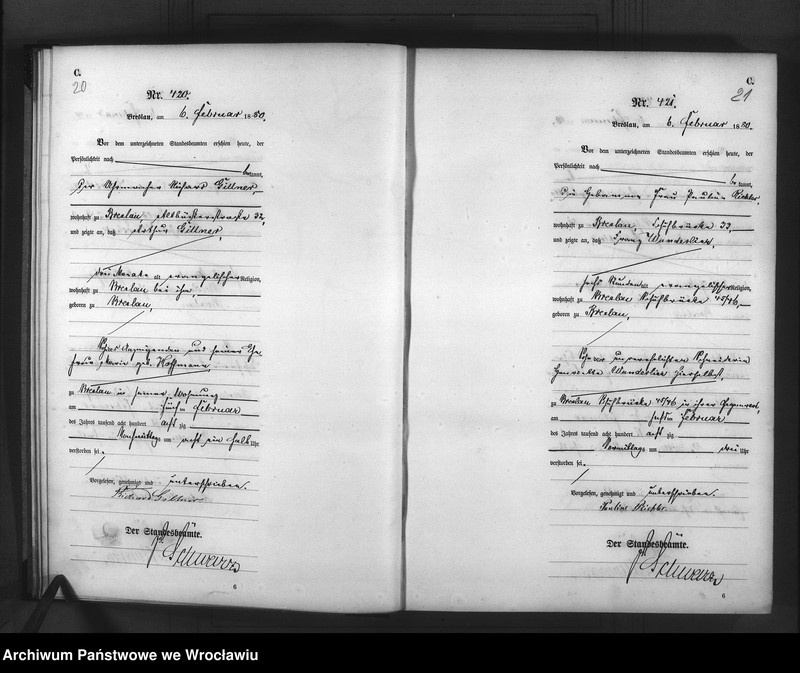 C.
20
Nr. 420.
Breslau, am 6. Februar 1880.
Vor dem unterzeichneten Standesbeamten erschien heute, der
Persönlichkeit nach
bekannt,
Der Uhrmacher Richard Gittner,
wohnhaft zu Breslau, Altbüsserstrasse 32,
und zeigte an, daß Arthur Gittner,
drei Monate alt evangelischer Religion,
wohnhaft zu Breslau bei ihm,
geboren zu Breslau,
Sohn des Anzeigenden und seiner Ehe-
frau Marie geb. Hoffmann
zu Breslau in seiner Wohnung
am fünften Februar
des Jahres tausend acht hundert achtzig
Nachmittags um acht ein halb Uhr
verstorben sei.
Vorgelesen, genehmigt und unterschrieben.
Richard Gittner
Der Standesbeamte.
Schwarz
6
C.
21
Nr. 421.
Breslau, am 6. Februar 1880.
Vor dem unterzeichneten Standesbeamten erschien heute, der
Persönlichkeit nach
bekannt,
die Hebamme Frau Pauline Richter,
wohnhaft zu Breslau, Schuhbrücke 33,
und zeigte an, daß Franz Wunderlich,
sechs Stunden alt evangelischer Religion,
wohnhaft zu Breslau Schuhbrücke 45/46,
geboren zu Breslau,
Sohn der unverehelichten Schneiderin
Henriette Wunderlich hierselbst,
zu Breslau Schuhbrücke 45/46 in ihrer Gegenwart,
am sechsten Februar
des Jahres tausend acht hundert achtzig
Vormittags um drei Uhr
verstorben sei.
Vorgelesen, genehmigt und unterschrieben.
Pauline Richter
Der Standesbeamte.
Schwarz
6
Archiwum Państwowe we Wrocławiu